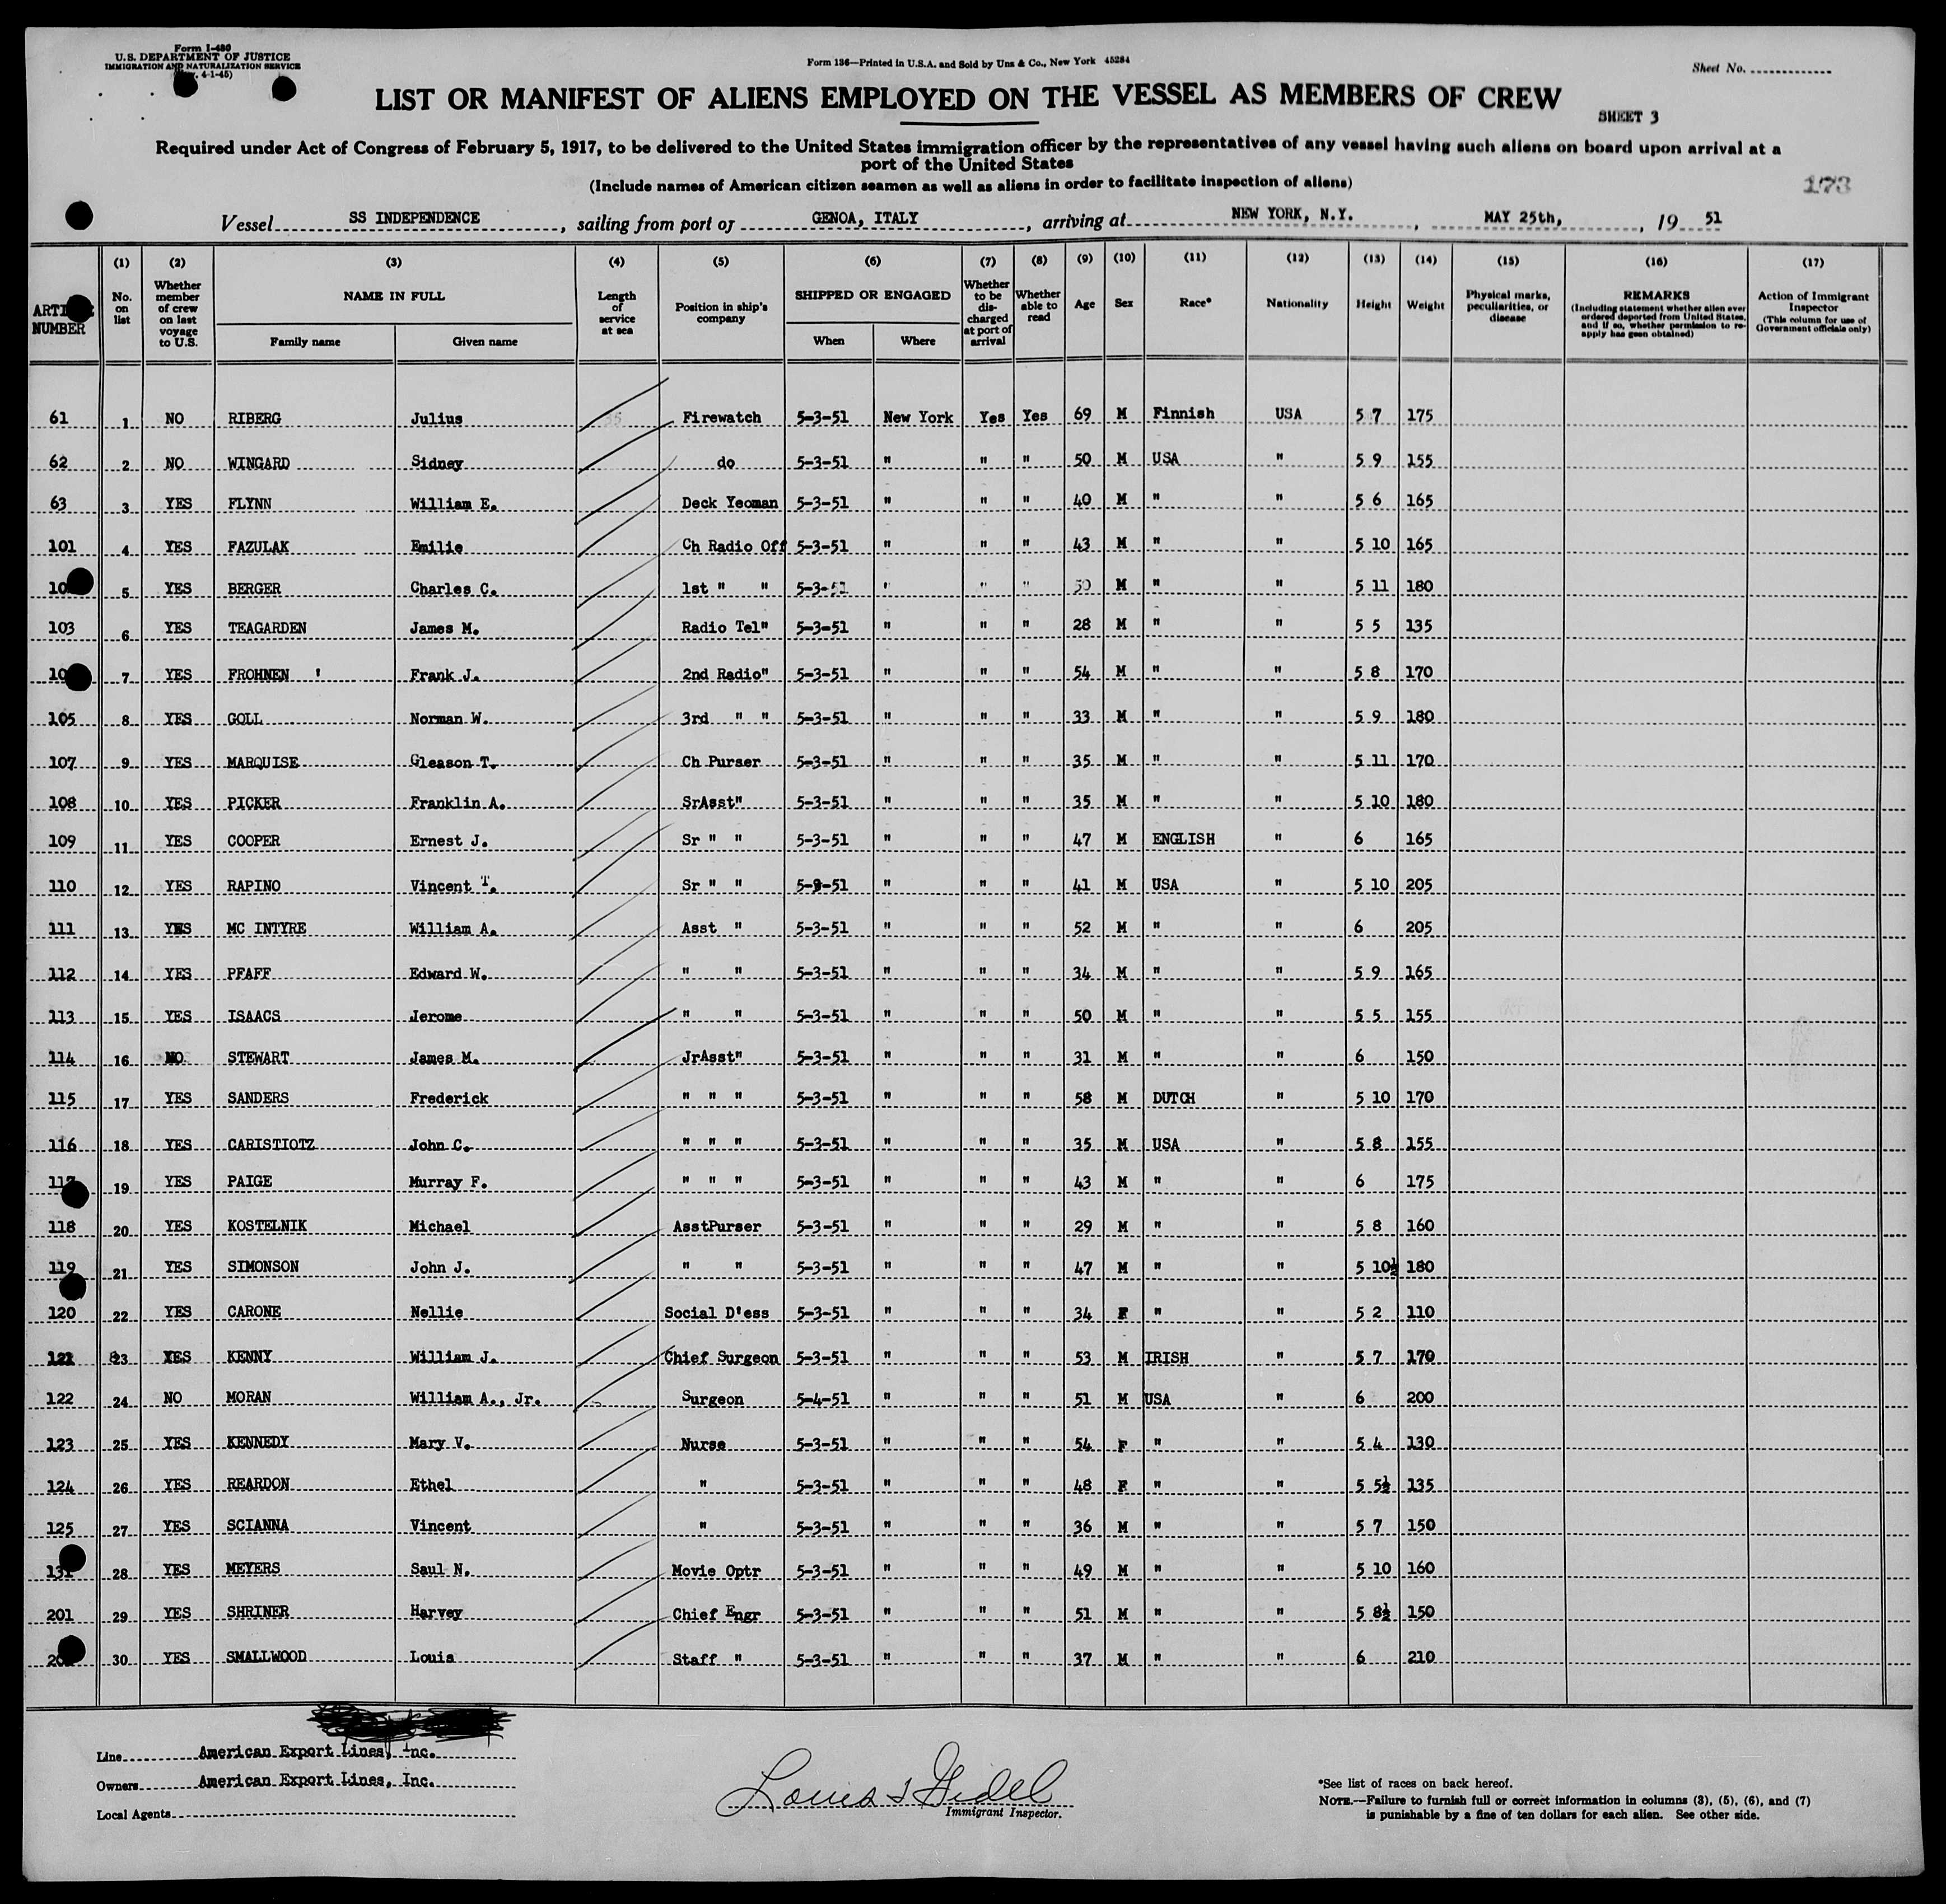 Form I-480
U.S. DEPARTMENT OF JUSTICE
IMMIGRATION AND NATURALIZATION SERVICE
4-1-45)
Form 136—Printed in U.S.A. and Sold by Unz & Co., New York 45284
Sheet No.
LIST OR MANIFEST OF ALIENS EMPLOYED ON THE VESSEL AS MEMBERS OF CREW
SHEET 3
Required under Act of Congress of February 5, 1917, to be delivered to the United States immigration officer by the representatives of any vessel having such aliens on board upon arrival at a
port of the United States
(Include names of American citizen seamen as well as aliens in order to facilitate inspection of aliens)
173
Vessel SS INDEPENDENCE, sailing from port of GENOA, ITALY, arriving at NEW YORK, N.Y., MAY 25th, 19 51
(1) (2) (3) (4) (5) (6) (7) (8) (9) (10) (11) (12) (13) (14) (15) (16) (17)
NUMBER
No. on list
Whether member of crew on last voyage to U.S.
NAME IN FULL
Family name Given name
Length of service at sea
Position in ship's company
SHIPPED OR ENGAGED
When Where
Whether to be discharged at port of arrival
Whether able to read
Age Sex Race* Nationality Height Weight
Physical marks, peculiarities, or disease
REMARKS
(Including statement whether alien ever ordered deported from United States, and if so, whether permission to re-apply has geen obtained)
Action of Immigrant Inspector
(This column for use of Government officials only)
61 1 NO RIBERG Julius Firewatch 5-3-51 New York Yes Yes 69 M Finnish USA 5 7 175
62 2 NO WINGARD Sidney do 5-3-51 " " " 50 M USA " 5 9 155
63 3 YES FLYNN William E. Deck Yeoman 5-3-51 " " " 40 M " " 5 6 165
101 4 YES FAZULAK Emilie Ch Radio Off 5-3-51 " " " 43 M " " 5 10 165
5 YES BERGER Charles C. 1st " " 5-3-51 " " " M " " 5 11 180
103 6 YES TEAGARDEN James M. Radio Tel" 5-3-51 " " " 28 M " " 5 5 135
7 YES FROHNEN ' Frank J. 2nd Radio" 5-3-51 " " " 54 M " " 5 8 170
105 8 YES GOLL Norman W. 3rd " " 5-3-51 " " " 33 M " " 5 9 180
107 9 YES MARQUISE Gleason T. Ch Purser 5-3-51 " " " 35 M " " 5 11 170
108 10 YES PICKER Franklin A. SrAsst" 5-3-51 " " " 35 M " " 5 10 180
109 11 YES COOPER Ernest J. Sr " " 5-3-51 " " " 47 M ENGLISH " 6 165
110 12 YES RAPINO Vincent T. Sr " " 5-3-51 " " " 41 M USA " 5 10 205
111 13 YES MC INTYRE William A. Asst " 5-3-51 " " " 52 M " " 6 205
112 14 YES PFAFF Edward W. " " 5-3-51 " " " 34 M " " 5 9 165
113 15 YES ISAACS Jerome " " 5-3-51 " " " 50 M " " 5 5 155
114 16 NO STEWART James M. JrAsst" 5-3-51 " " " 31 M " " 6 150
115 17 YES SANDERS Frederick " " " 5-3-51 " " " 58 M DUTCH " 5 10 170
116 18 YES CARISTIOTZ John C. " " " 5-3-51 " " " 35 M USA " 5 8 155
117 19 YES PAIGE Murray F. " " " 5-3-51 " " " 43 M " " 6 175
118 20 YES KOSTELNIK Michael AsstPurser 5-3-51 " " " 29 M " " 5 8 160
119 21 YES SIMONSON John J. " " 5-3-51 " " " 47 M " " 5 10½ 180
120 22 YES CARONE Nellie Social D'ess 5-3-51 " " " 34 F " " 5 2 110
121 23 YES KENNY William J. Chief Surgeon 5-3-51 " " " 53 M IRISH " 5 7 170
122 24 NO MORAN William A., Jr. Surgeon 5-4-51 " " " 51 M USA " 6 200
123 25 YES KENNEDY Mary V. Nurse 5-3-51 " " " 54 F " " 5 4 130
124 26 YES REARDON Ethel " 5-3-51 " " " 48 F " " 5 5½ 135
125 27 YES SCIANNA Vincent " 5-3-51 " " " 36 M " " 5 7 150
131 28 YES MEYERS Saul N. Movie Optr 5-3-51 " " " 49 M " " 5 10 160
201 29 YES SHRINER Harvey Chief Engr 5-3-51 " " " 51 M " " 5 8½ 150
30 YES SMALLWOOD Louis Staff " 5-3-51 " " " 37 M " " 6 210
Line American Export Lines, Inc.
Owners American Export Lines, Inc.
Local Agents
Immigrant Inspector.
*See list of races on back hereof.
NOTE.—Failure to furnish full or correct information in columns (3), (5), (6), and (7)
is punishable by a fine of ten dollars for each alien. See other side.